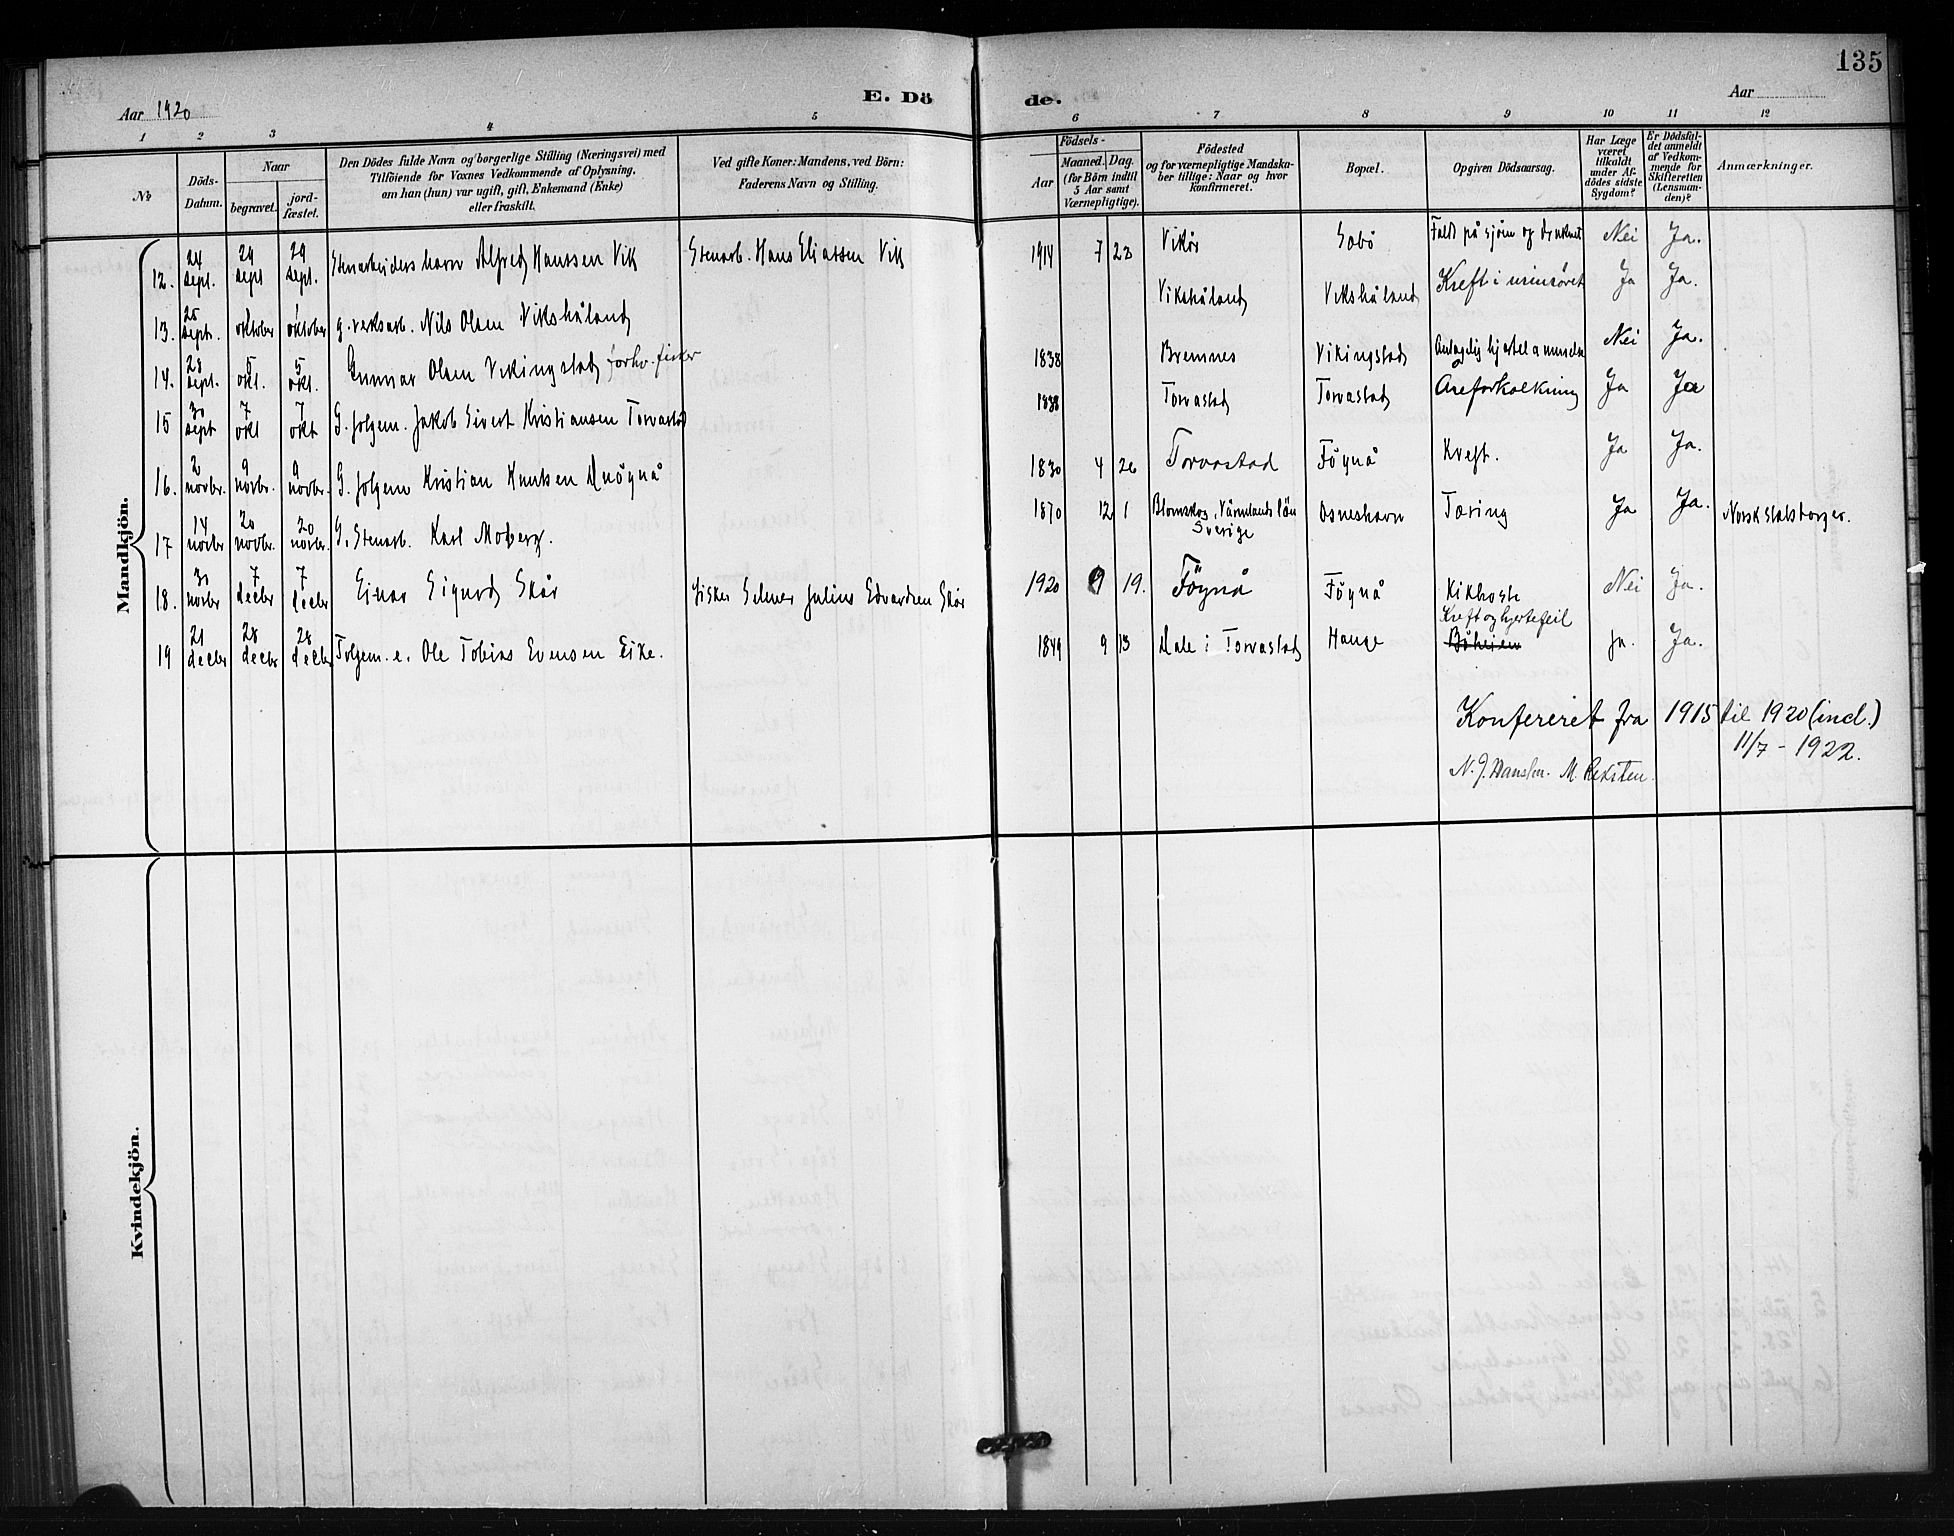 135
Aar 1920 E. Dö de. Aar
1 2 3 4 5 6 7 8 9 10 11 12
No
Döds-Datum.
Naar
begravet.
jord-fæstet.
Den Dödes fulde Navn og borgerlige Stilling (Næringsvei) med
Tilföiende for Voxnes Vedkommende af Oplysning,
om han (hun) var ugift, gift, Enkemand (Enke)
eller fraskilt.
Ved gifte Koner: Mandens, ved Börn:
Faderens Navn og Stilling.
Födsels-
Aar
Maaned. Dag.
(for Börn indtil
5 Aar samt
Værnepligtige).
Födested
og for værnepligtige Mandska-
ber tillige: Naar og hvor
konfirmeret.
Bopæl.
Opgiven Dödsaarsag.
Har Læge
været
tilkaldt
under Af-
dödes sidste
Sygdom?
Er Dödsfal-
det anmeldt
af Vedkom-
mende for
Skifteretten
(Lensman-
den)?
Anmærkninger.
Mandkjön.
12. 24 sept. 29 sept 29 sept. Stenarbeiders barn Alfred Hanssen Vik Stenarb. Hans Eliassen Vik 1914 7 23 Vikör Sæbö Faldt på sjöen og druknet Nei Ja.
13. 25 sept. 1 oktober 1 oktober g. verksarb. Nils Olsen Vikshåland Vikshåland Vikshåland Kreft i urinröret Ja Ja.
14. 28 sept. 5 okt. 5 okt. Gunnar Olsen Vikingstad forhv. fisker 1838 Bremnes Vikingstad Antagelig hjertelammelse Nei Ja.
15 30 sept 7 okt 7 okt G. folgem. Jakob Sivert Kristiansen Torvastad 1838 Torvastad Torvastad Areforkalkning Ja Ja
16. 2 novbr. 9 novbr. 9 novbr. G. folgem Kristian Knutsen Föynå 1830 4 26 Torvastad Föynå Kreft. Ja Ja.
17 14 novbr 20 novbr. 20 novbr. G. Stenarb. Karl Moberg. 1870 12 1 Blomskog, Värmlands län Sverige Osneshavn Tæring Ja Ja. Norsk statsborger.
18. 30 novbr 7 decbr 7 decbr Einar Sigurd Skår fisker Selmer Julius Edvardsen Skår 1920 9 19. Föynå Föynå Kikhoste Nei Ja.
19 21 decbr 28 decbr 28 decbr Folgem. e. Ole Tobias Evensen Eike. 1849 9 13 Dale i Torvastad Hauge Kreft og hjertefeil ja. Ja.
Konfereret fra 1915 til 1920 (incl.)
11/7 - 1922.
N. J. Hansen. M. Reksten.
Kvindekjön.